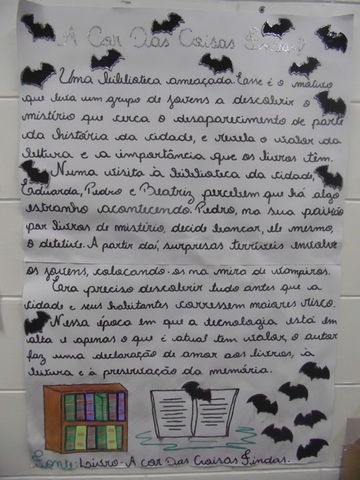 A Cor Das Coisas Findas
Uma biblioteca ameaçada. Esse é o motivo
que leva um grupo de jovens a descobrir o
mistério que cerca o desaparecimento de parte
da história da cidade, e revela o valor da
leitura e a importância que os livros têm.
Numa visita à biblioteca da cidade,
Eduarda, Pedro e Beatriz percebem que há algo
estranho acontecendo. Pedro, na sua paixão
por livros de mistério, decide bancar, ele mesmo,
o detetive. A partir daí, surpresas terríveis envolve
os jovens, colocando-os na mira de vampiros.
Era preciso descobrir tudo antes que a
cidade e seus habitantes corressem maiores risco.
Nessa época em que a tecnologia está em
alta e apenas o que é atual tem valor, o autor
faz uma declaração de amor aos livros, à
leitura e à preservação da memória.
Fonte: Livro - A Cor Das Coisas Findas.